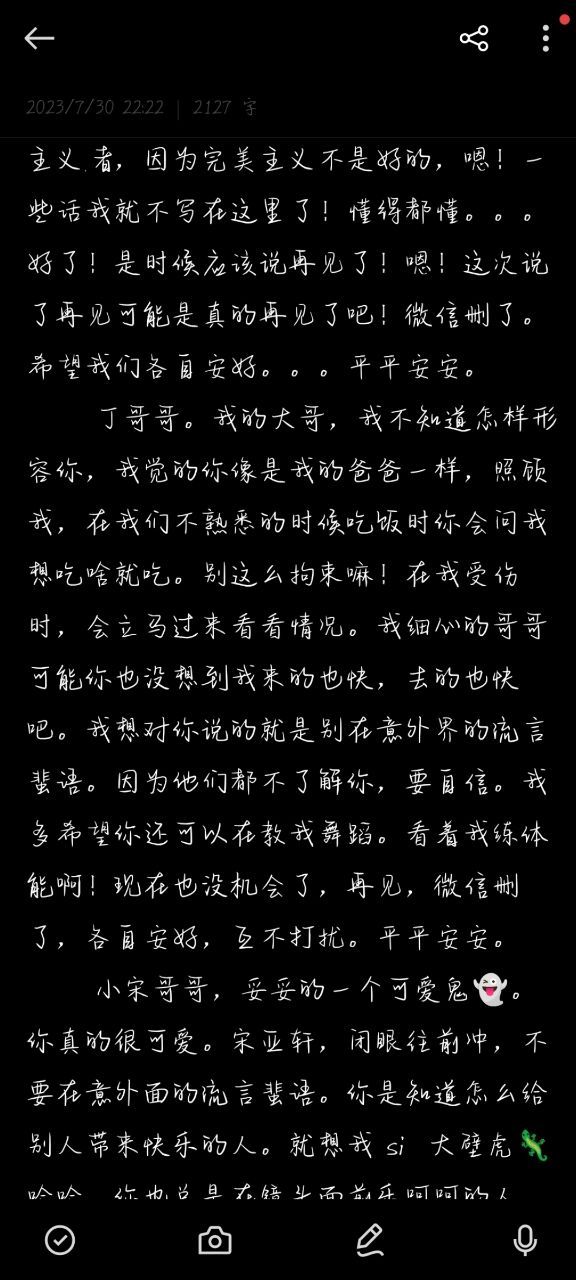 2023/7/30 22:22 | 2127 字
主义者，因为完美主义不是好的，嗯！一
些话我就不写在这里了！懂得都懂。。。
好了！是时候应该说再见了！嗯！这次说
了再见可能是真的再见了吧！微信删了。
希望我们各自安好。。。平平安安。
丁哥哥。我的大哥，我不知道怎样形
容你，我觉的你像是我的爸爸一样，照顾
我，在我们不熟悉的时候吃饭时你会问我
想吃啥就吃。别这么拘束嘛！在我受伤
时，会立马过来看看情况。我细心的哥哥
可能你也没想到我来的也快，去的也快
吧。我想对你说的就是别在意外界的流言
蜚语。因为他们都不了解你，要自信。我
多希望你还可以在教我舞蹈。看着我练体
能啊！现在也没机会了，再见，微信删
了，各自安好，互不打扰。平平安安。
小宋哥哥，妥妥的一个可爱鬼👻。
你真的很可爱。宋亚轩，闭眼往前冲，不
要在意外面的流言蜚语。你是知道怎么给
别人带来快乐的人。就想我 si 大壁虎🦎
哈哈，你也总是在镜头面前乐呵呵的人